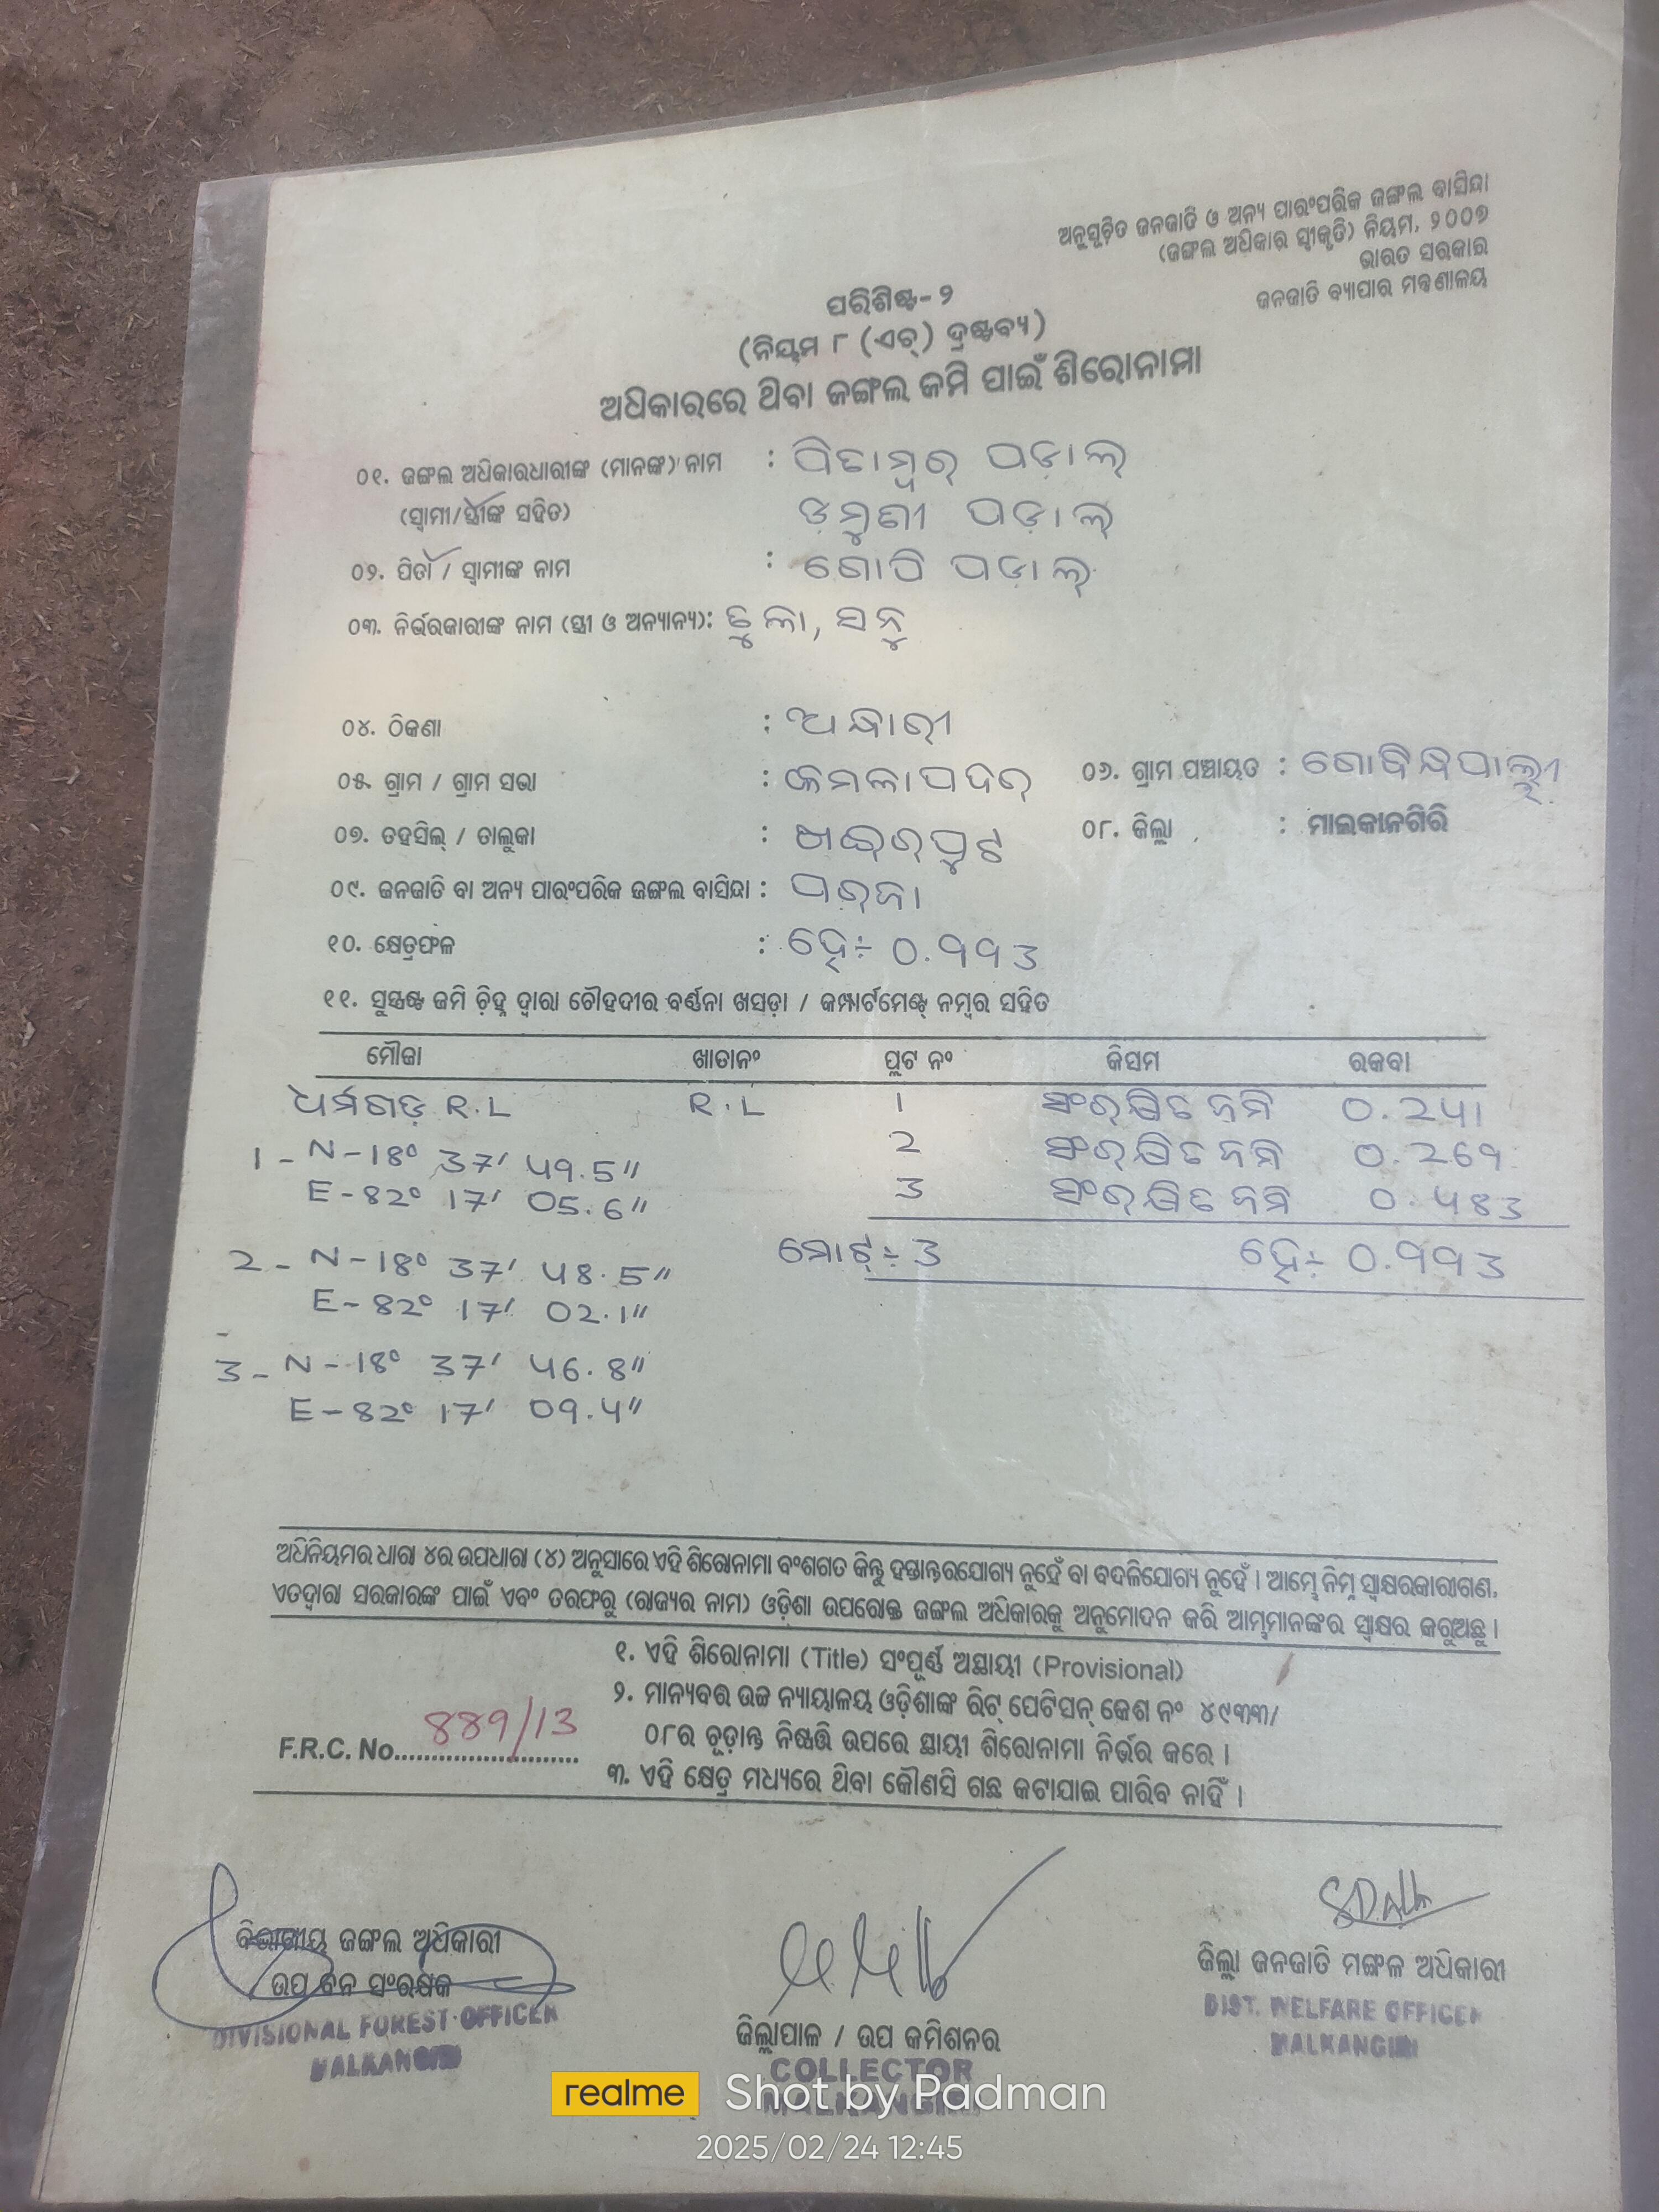 ଅନୁସୂଚିତ ଜନଜାତି ଓ ଅନ୍ୟ ପାରଂପରିକ ଜଙ୍ଗଲ ବାସିନ୍ଦା
(ଜଙ୍ଗଲ ଅଧିକାର ସ୍ୱୀକୃତି) ନିୟମ, ୨୦୦୭
ଭାରତ ସରକାର
ଜନଜାତି ବ୍ୟାପାର ମନ୍ତ୍ରଣାଳୟ
ପରିଶିଷ୍ଟ-୨
(ନିୟମ ୮ (ଏଚ୍) ଦ୍ରଷ୍ଟବ୍ୟ)
ଅଧିକାରରେ ଥିବା ଜଙ୍ଗଲ ଜମି ପାଇଁ ଶିରୋନାମା
୦୧. ଜଙ୍ଗଲ ଅଧିକାରଧାରୀଙ୍କ (ମାନଙ୍କ) ନାମ : ପିତାମ୍ବର ପଡ଼ାଲ୍
(ସ୍ୱାମୀ/ସ୍ତ୍ରୀଙ୍କ ସହିତ) ଡ଼ମୁଣୀ ପଡ଼ାଲ୍
୦୨. ପିତା / ସ୍ୱାମୀଙ୍କ ନାମ : ଗୋପି ପଡ଼ାଲ୍
୦୩. ନିର୍ଭରକାରୀଙ୍କ ନାମ (ସ୍ତ୍ରୀ ଓ ଅନ୍ୟାନ୍ୟ): ତୁଳା, ସନୁ
୦୪. ଠିକଣା : ଅନ୍ଧାରୀ
୦୫. ଗ୍ରାମ / ଗ୍ରାମ ସଭା : କମଳାପଦର ୦୬. ଗ୍ରାମ ପଞ୍ଚାୟତ : ଗୋବିନ୍ଧପାଲ୍ଲୀ
୦୭. ତହସିଲ୍ / ତାଲୁକା : ଖଇରପୁଟ ୦୮. ଜିଲ୍ଲା : ମାଲକାନଗିରି
୦୯. ଜନଜାତି ବା ଅନ୍ୟ ପାରଂପରିକ ଜଙ୍ଗଲ ବାସିନ୍ଦା : ପରଜା
୧୦. କ୍ଷେତ୍ରଫଳ : ହେ÷ ୦.୩୩3
୧୧. ସୁସ୍ପଷ୍ଟ ଜମି ଚିହ୍ନ ଦ୍ୱାରା ଚୌହଦୀର ବର୍ଣ୍ଣନା ଖସଡ଼ା / କମ୍ପାର୍ଟମେଣ୍ଟ୍ ନମ୍ବର ସହିତ
ମୌଜା ଖାତାନଂ ପ୍ଲଟ ନଂ କିସମ ରକବା
ଧର୍ମଗଡ଼ R.L R.L 1 ସଂରକ୍ଷିତ ଜମି 0.241
1 - N-18° 37' 49.5" 2 ସଂରକ୍ଷିତ ଜମି
E-82° 17' 05.6" 3 ସଂରକ୍ଷିତ ଜମି 0.483
2 - N-18° 37' 48.5" ମୋଟ୍÷ 3
E-82° 17' 02.1"
3 - N-18° 37' 46.8"
E-82° 17' 09.4"
ଅଧିନିୟମର ଧାରା ୪ର ଉପଧାରା (୪) ଅନୁସାରେ ଏହି ଶିରୋନାମା ବଂଶଗତ କିନ୍ତୁ ହସ୍ତାନ୍ତରଯୋଗ୍ୟ ନୁହେଁ ବା ବଦଳିଯୋଗ୍ୟ ନୁହେଁ । ଆମ୍ଭେ ନିମ୍ନ ସ୍ୱାକ୍ଷରକାରୀଗଣ,
ଏତଦ୍ୱାରା ସରକାରଙ୍କ ପାଇଁ ଏବଂ ତରଫରୁ (ରାଜ୍ୟର ନାମ) ଓଡ଼ିଶା ଉପରୋକ୍ତ ଜଙ୍ଗଲ ଅଧିକାରକୁ ଅନୁମୋଦନ କରି ଆମ୍ଭମାନଙ୍କର ସ୍ୱାକ୍ଷର କରୁଅଛୁ ।
୧. ଏହି ଶିରୋନାମା (Title) ସଂପୂର୍ଣ୍ଣ ଅସ୍ଥାୟୀ (Provisional)
୨. ମାନ୍ୟବର ଉଚ୍ଚ ନ୍ୟାୟାଳୟ ଓଡ଼ିଶାଙ୍କ ରିଟ୍ ପେଟିସନ୍ କେଶ ନଂ ୪୯୩୩/
୦୮ର ଚୂଡ଼ାନ୍ତ ନିଷ୍ପତ୍ତି ଉପରେ ସ୍ଥାୟୀ ଶିରୋନାମା ନିର୍ଭର କରେ ।
F.R.C. No. 889/13
୩. ଏହି କ୍ଷେତ୍ର ମଧ୍ୟରେ ଥିବା କୌଣସି ଗଛ କଟାଯାଇ ପାରିବ ନାହିଁ ।
ବିଭାଗୀୟ ଜଙ୍ଗଲ ଅଧିକାରୀ
ଉପ ବନ ସଂରକ୍ଷକ
DIVISIONAL FOREST OFFICER
MALKANGIRI
ଜିଲ୍ଲାପାଳ / ଉପ କମିଶନର
COLLECTOR
MALKANGIRI
ଜିଲ୍ଲା ଜନଜାତି ମଙ୍ଗଳ ଅଧିକାରୀ
DIST. WELFARE OFFICER
MALKANGIRI
realme Shot by Padman
2025/02/24 12:45